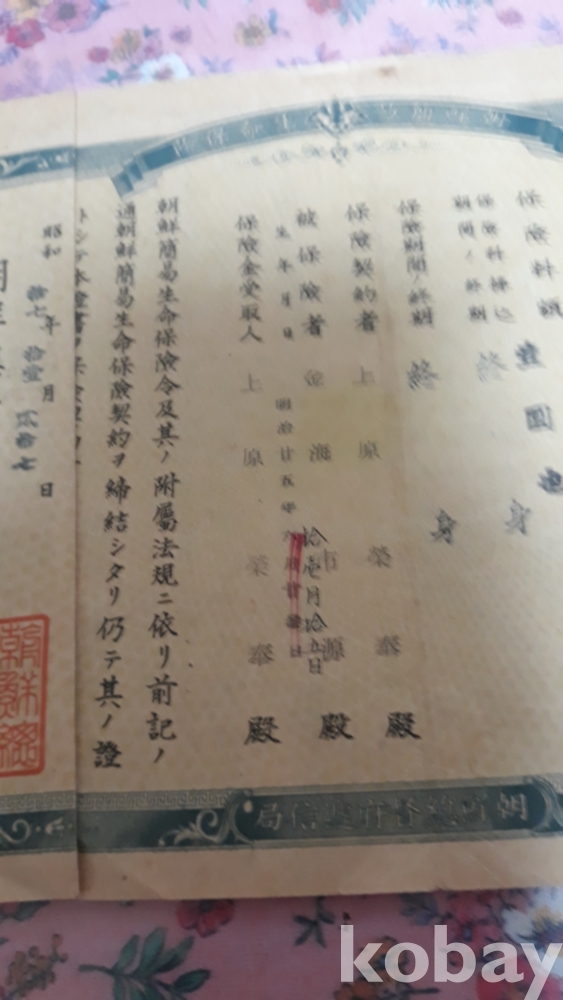 保險料額 壹圓也
保險料拂込
期間ノ終期 終身
保險期間ノ終期 終身
保險契約者 上原榮奉殿
被保險者 金海 源殿
生年月日 明治廿五年
拾壱月拾五日
保險金受取人 上原榮奉殿
朝鮮簡易生命保險令及其ノ附屬法規ニ依リ前記ノ
通朝鮮簡易生命保險契約ヲ締結シタリ仍テ其ノ證
トシテ本證書
昭和拾七年拾壹月貳拾七日
朝鮮總
朝鮮總督府遞信局
kobay